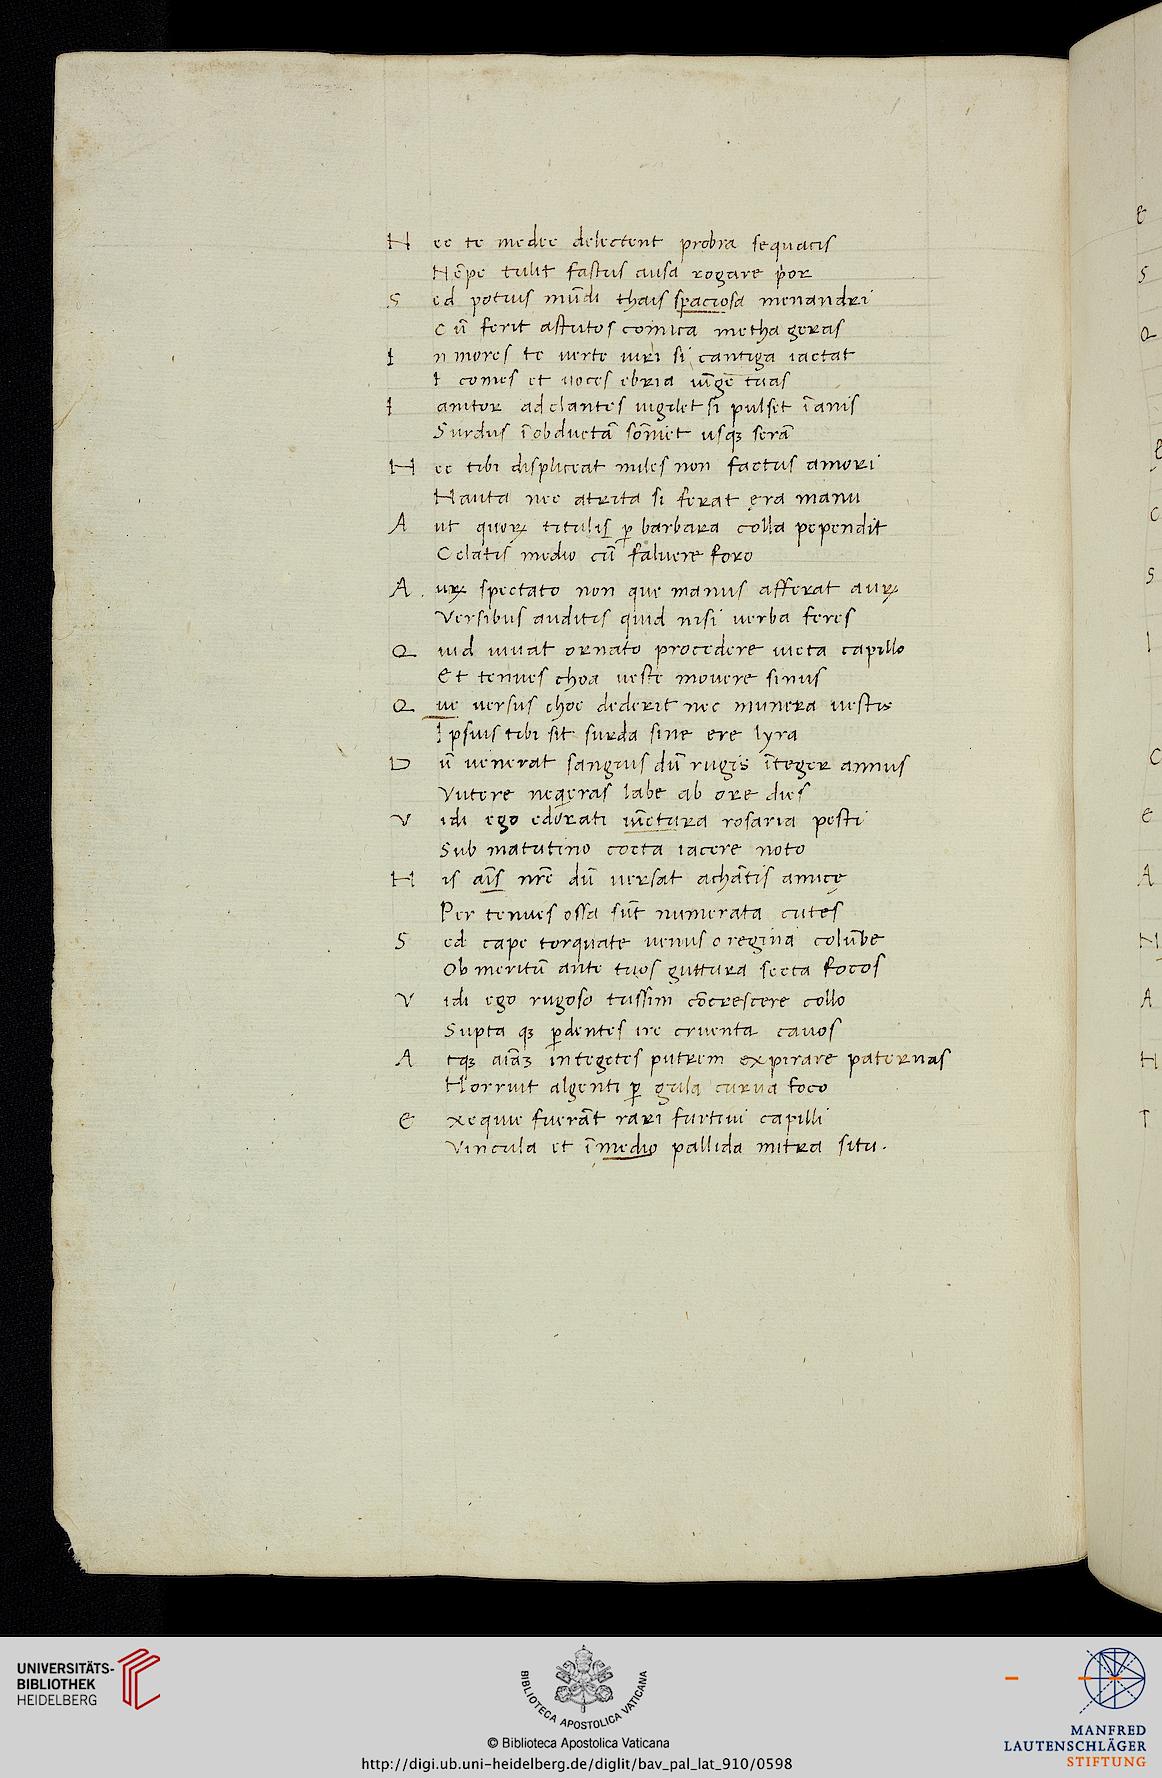 N ec te medee delectent probra sequacis
Nẽpe tulit fastus ausa rogare p̀or
S ed potius mũdi thais spaciosa menandri
Cũ ferit astutos comica metha geras
I n mores te verte viri si cantiga iactat
I comes et voces ebria iũge tuas
I anitor ad dantes vigilet si pulset ĩanis
Surdus ĩ obductã sõmet usqꝫ serã
N ec tibi displiceat miles non factus amori
Nauta nec atrita si ferat ęra manu
A ut quoꝝ titulis ꝑ barbara colla pependit
Celatis medio cũ saluere foro
A uꝝ spectato non que manus afferat auꝝ
Versibus auditis quid nisi verba feres
Q uid iuvat ornato procedere vieta capillo
Et tenues choa veste movere sinus
Q ue versus choe dederit nec munera vestis
Ipsius tibi sit surda sine ere lyra
D ũ venerat sangius dũ rugis ĩteger annus
Vutere neqęras labe ab ore dies
V idi ego edorati viẽctura rosaria pesti
Sub matutino cocta iacere noto
H is aĩs nrẽ dũ versat achãtis amicę
Per tenues ossa sũt numerata cutes
S ed cape torquate venus o regina colũbe
Ob meritũ ante tuos guttura secta focos
V idi ego rugoso tussim cõcrescere collo
Supta qꝫ ꝑdentes ire cruenta cavos
A tqꝫ aiãꝫ in tegetes putrem expirare paternas
Horruit algenti ꝑ gula curva foco
E xequie fuerãt rari furtivi capilli
Vincula et ĩmedio pallida mitra situ.
E
S
Q
C
S
I
C
E
A
N
A
H
T
UNIVERSITÄTS-
BIBLIOTHEK
HEIDELBERG
BIBLIOTECA APOSTOLICA VATICANA
© Biblioteca Apostolica Vaticana
http://digi.ub.uni-heidelberg.de/diglit/bav_pal_lat_910/0598
MANFRED
LAUTENSCHLÄGER
STIFTUNG